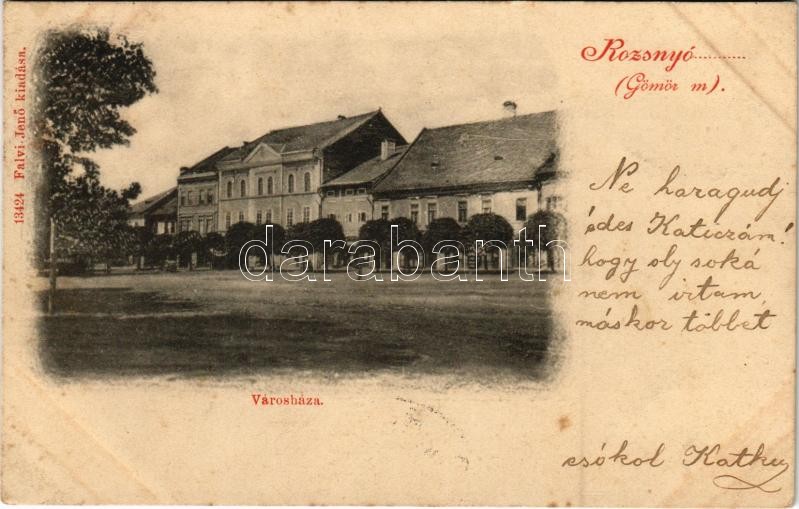 13424 Falvi Jenő kiadása.
Rozsnyó
(Gömör m).
Ne haragudj
édes Katiczám!
hogy oly soká
nem irtam,
máskor többet
csókol
darabanth.com
Városháza.